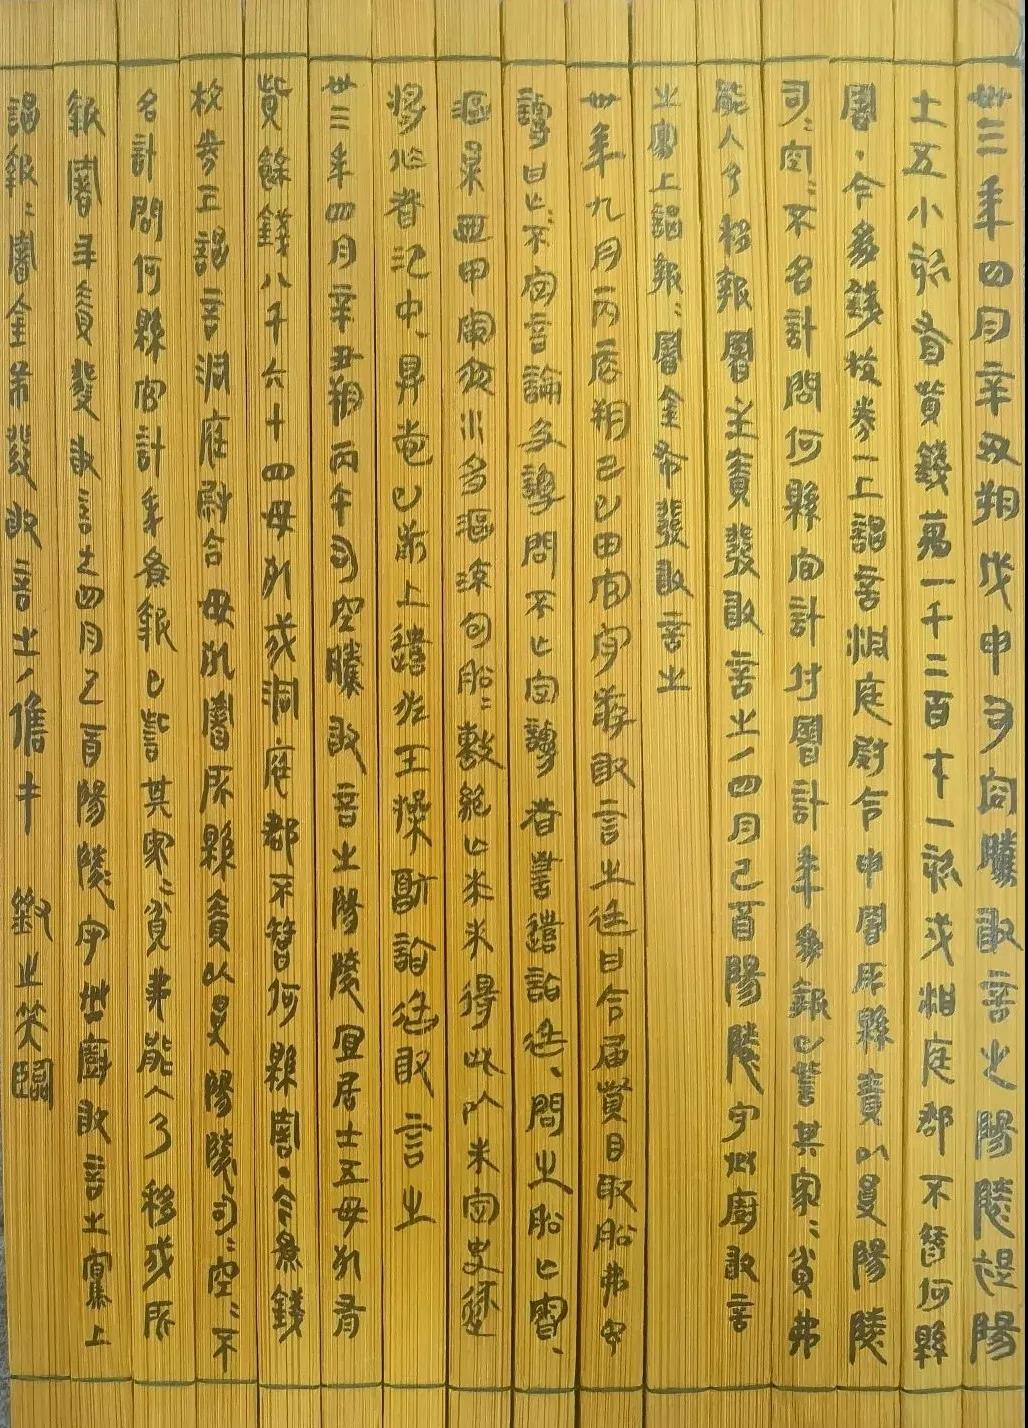 卅三年四月辛丑朔戊申司空騰敢言之陽陵褆陽
士五小欬有貲錢萬一千二百七十一欬戍洞庭郡不智何縣
署·今為錢校券一上謁言洞庭尉令申署所縣責以受陽陵
司=空=不名計問何縣官計付署計年為報已訾其家=貧弗
能入乃移報署主責發敢言之/四月己酉陽陵守丞廚敢言
之寫上謁報=署金布發敢言之
卅年九月丙辰朔己巳田官守敬敢言之廷曰令居貲目取船弗予
謾曰亡=不定言論及讂問不亡定謾者訾遣詣廷、問之船亡審、
漚枲迺甲寅夜水多漚流包船=繫絕亡求未得此以未定史逐
將作者汜中、具志已前上遣佐壬操副詣廷敢言之
卅三年四月辛丑朔丙午司空騰敢言之陽陵宜居士五毋死有
貲餘錢八千六十四毋死戍洞庭郡不智何縣署·令為錢
校券一上謁言洞庭尉令毋死署所縣責以受陽陵司=空=不
名計問何縣官計年為報已訾其家=貧弗能入乃移戍所
報署主責發敢言之四月己酉陽陵守丞廚敢言之寫上
謁報=署金布發敢言之/儋手 之臨